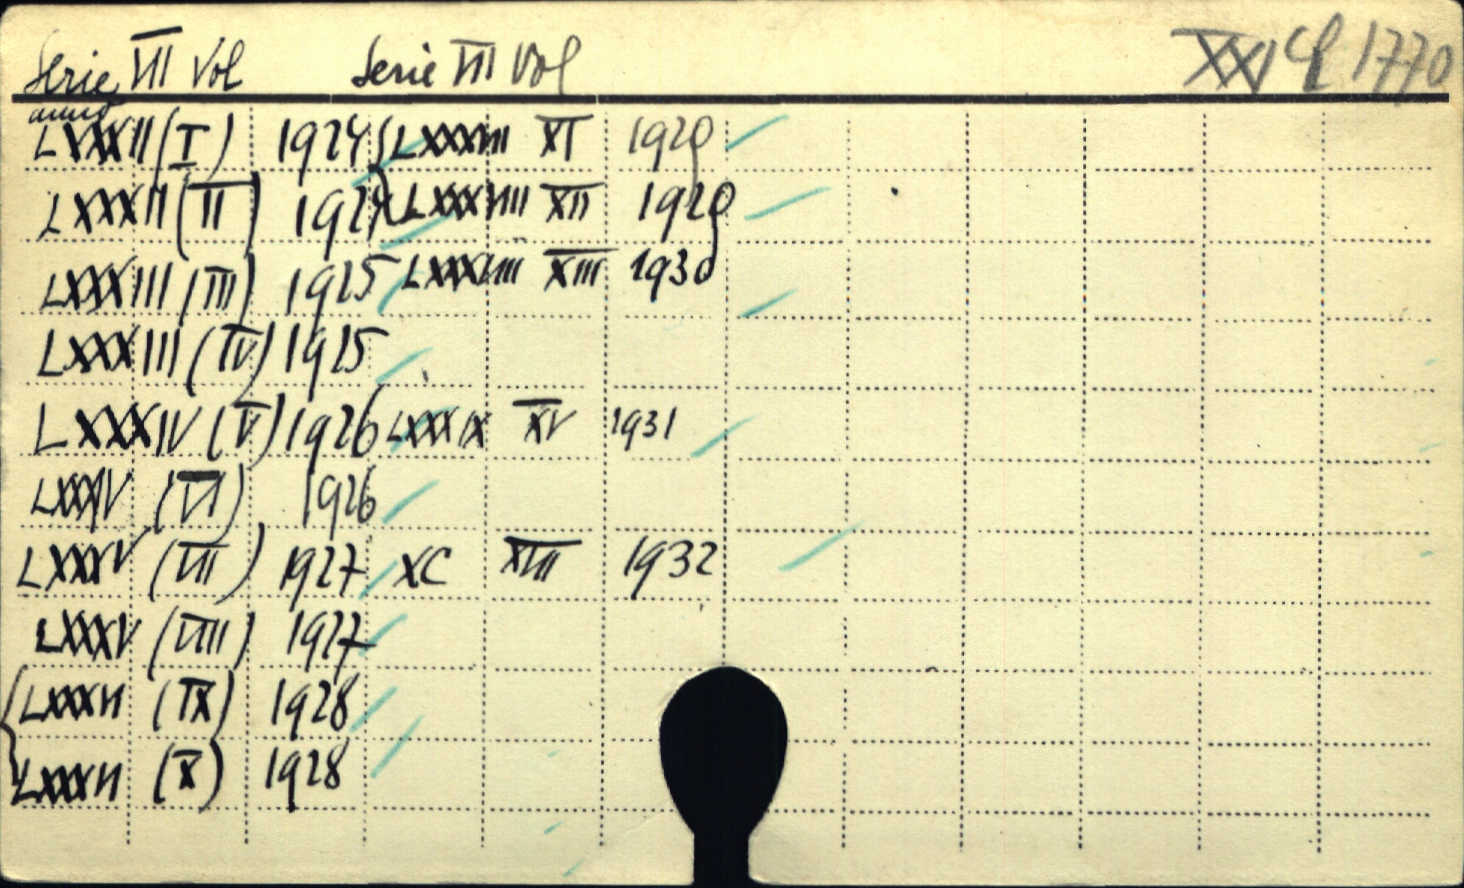 Serie VII Vol Serie VII Vol XXI Cf 1770
anno
LXXXII (I) 1924 LXXXVII XI 1929
LXXXII (II) 1924 LXXXVIII XII 1929
LXXXIII (III) 1925 LXXXVIII XIII 1930
LXXXIII (IV) 1925
LXXXIV (V) 1926 LXXXIX XV 1931
LXXXIV (VI) 1926
LXXXV (VII) 1927 XC XVII 1932
LXXXV (VIII) 1927
LXXXVI (IX) 1928
LXXXVI (X) 1928